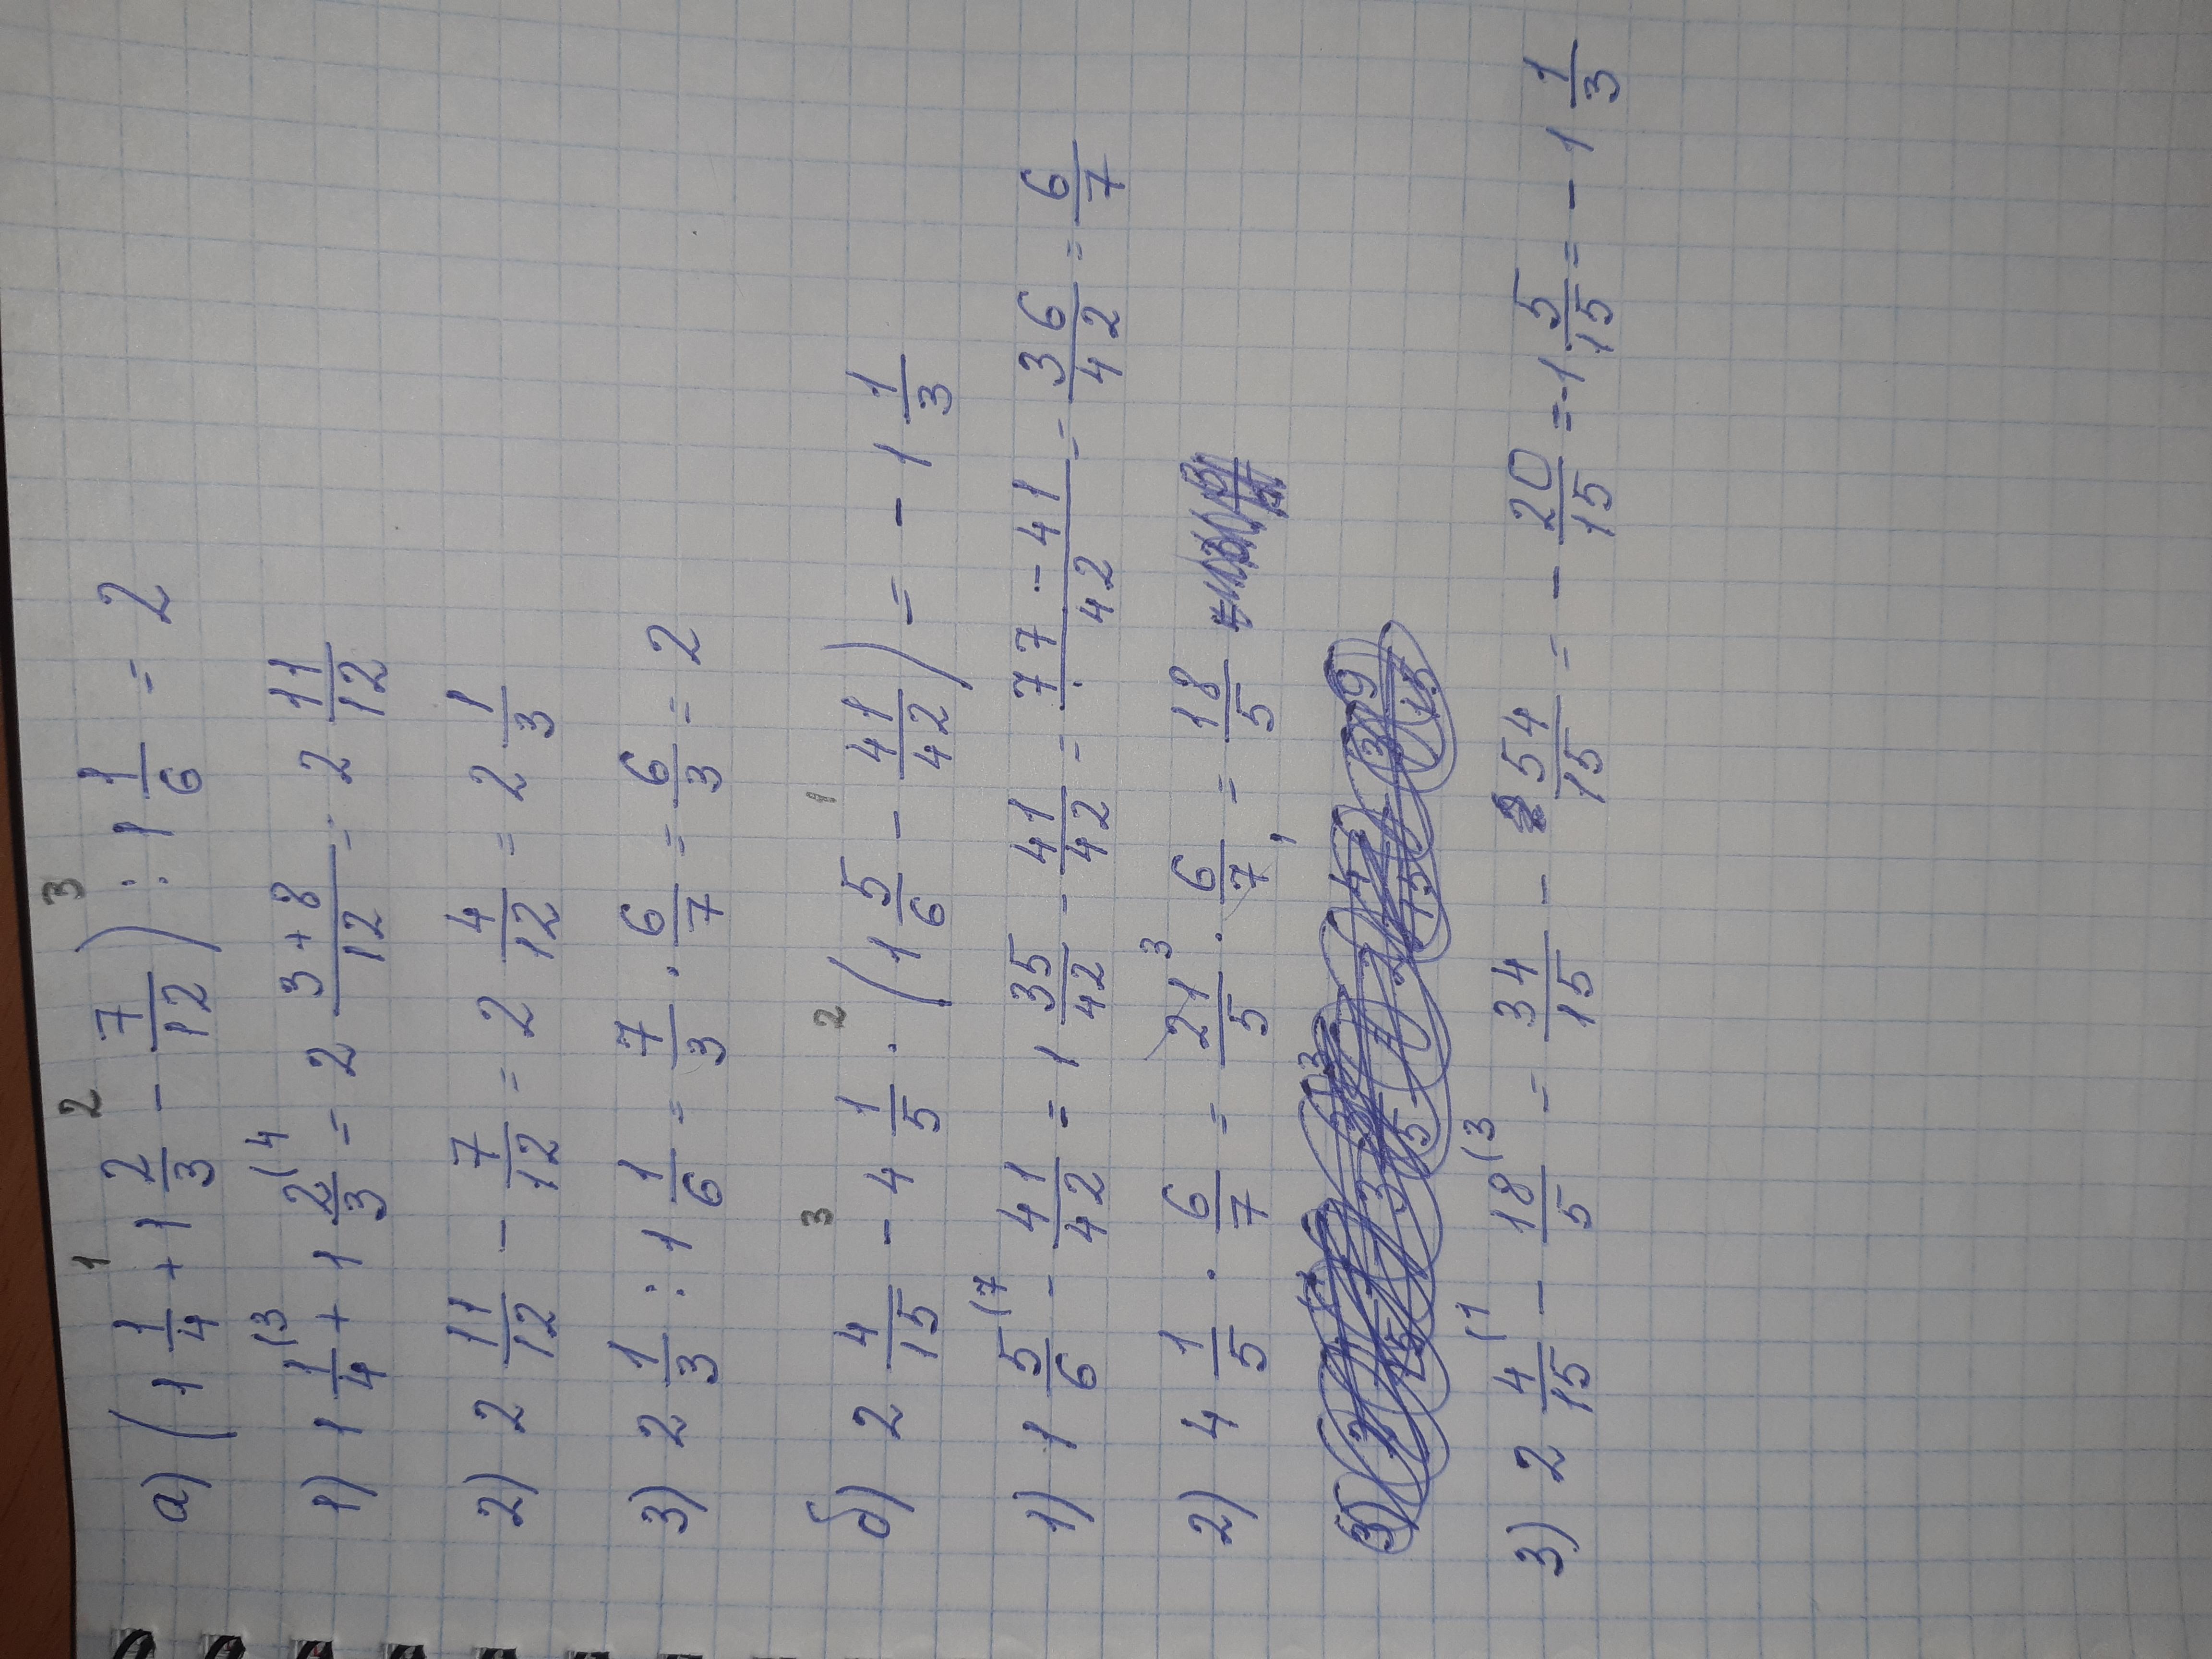 а) (1 1/4 + 1 2/3 - 7/12) : 1 1/6 = 2
1) 1 1/4 (3 + 1 2/3 (4 = 2 3+8/12 = 2 11/12
2) 2 11/12 - 7/12 = 2 4/12 = 2 1/3
3) 2 1/3 : 1 1/6 = 7/3 · 6/7 = 6/3 = 2
б) 2 4/15 - 4 1/5 · (1 5/6 - 41/42) = - 1 1/3
1) 1 5/6 (7 - 41/42 = 1 35/42 - 41/42 = 77-41/42 = 36/42 = 6/7
2) 4 1/5 · 6/7 = 21 3/5 · 6/7 1 = 18/5
3) 2 4/15 (1 - 18/5 (3 = 34/15 - 54/15 = - 20/15 = -1 5/15 = - 1 1/3